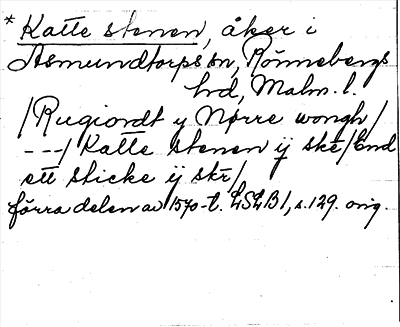 * Katte stenen, åker i
Asmundtorps sn, Rönnebergs
hd, Malm. l.
/Rugiordt y Nørre wongh/
---/ Katte stenen ij skr/End
ett sticke ij skr/
förra delen av 1570-t. LSLB1, s. 129. orig.